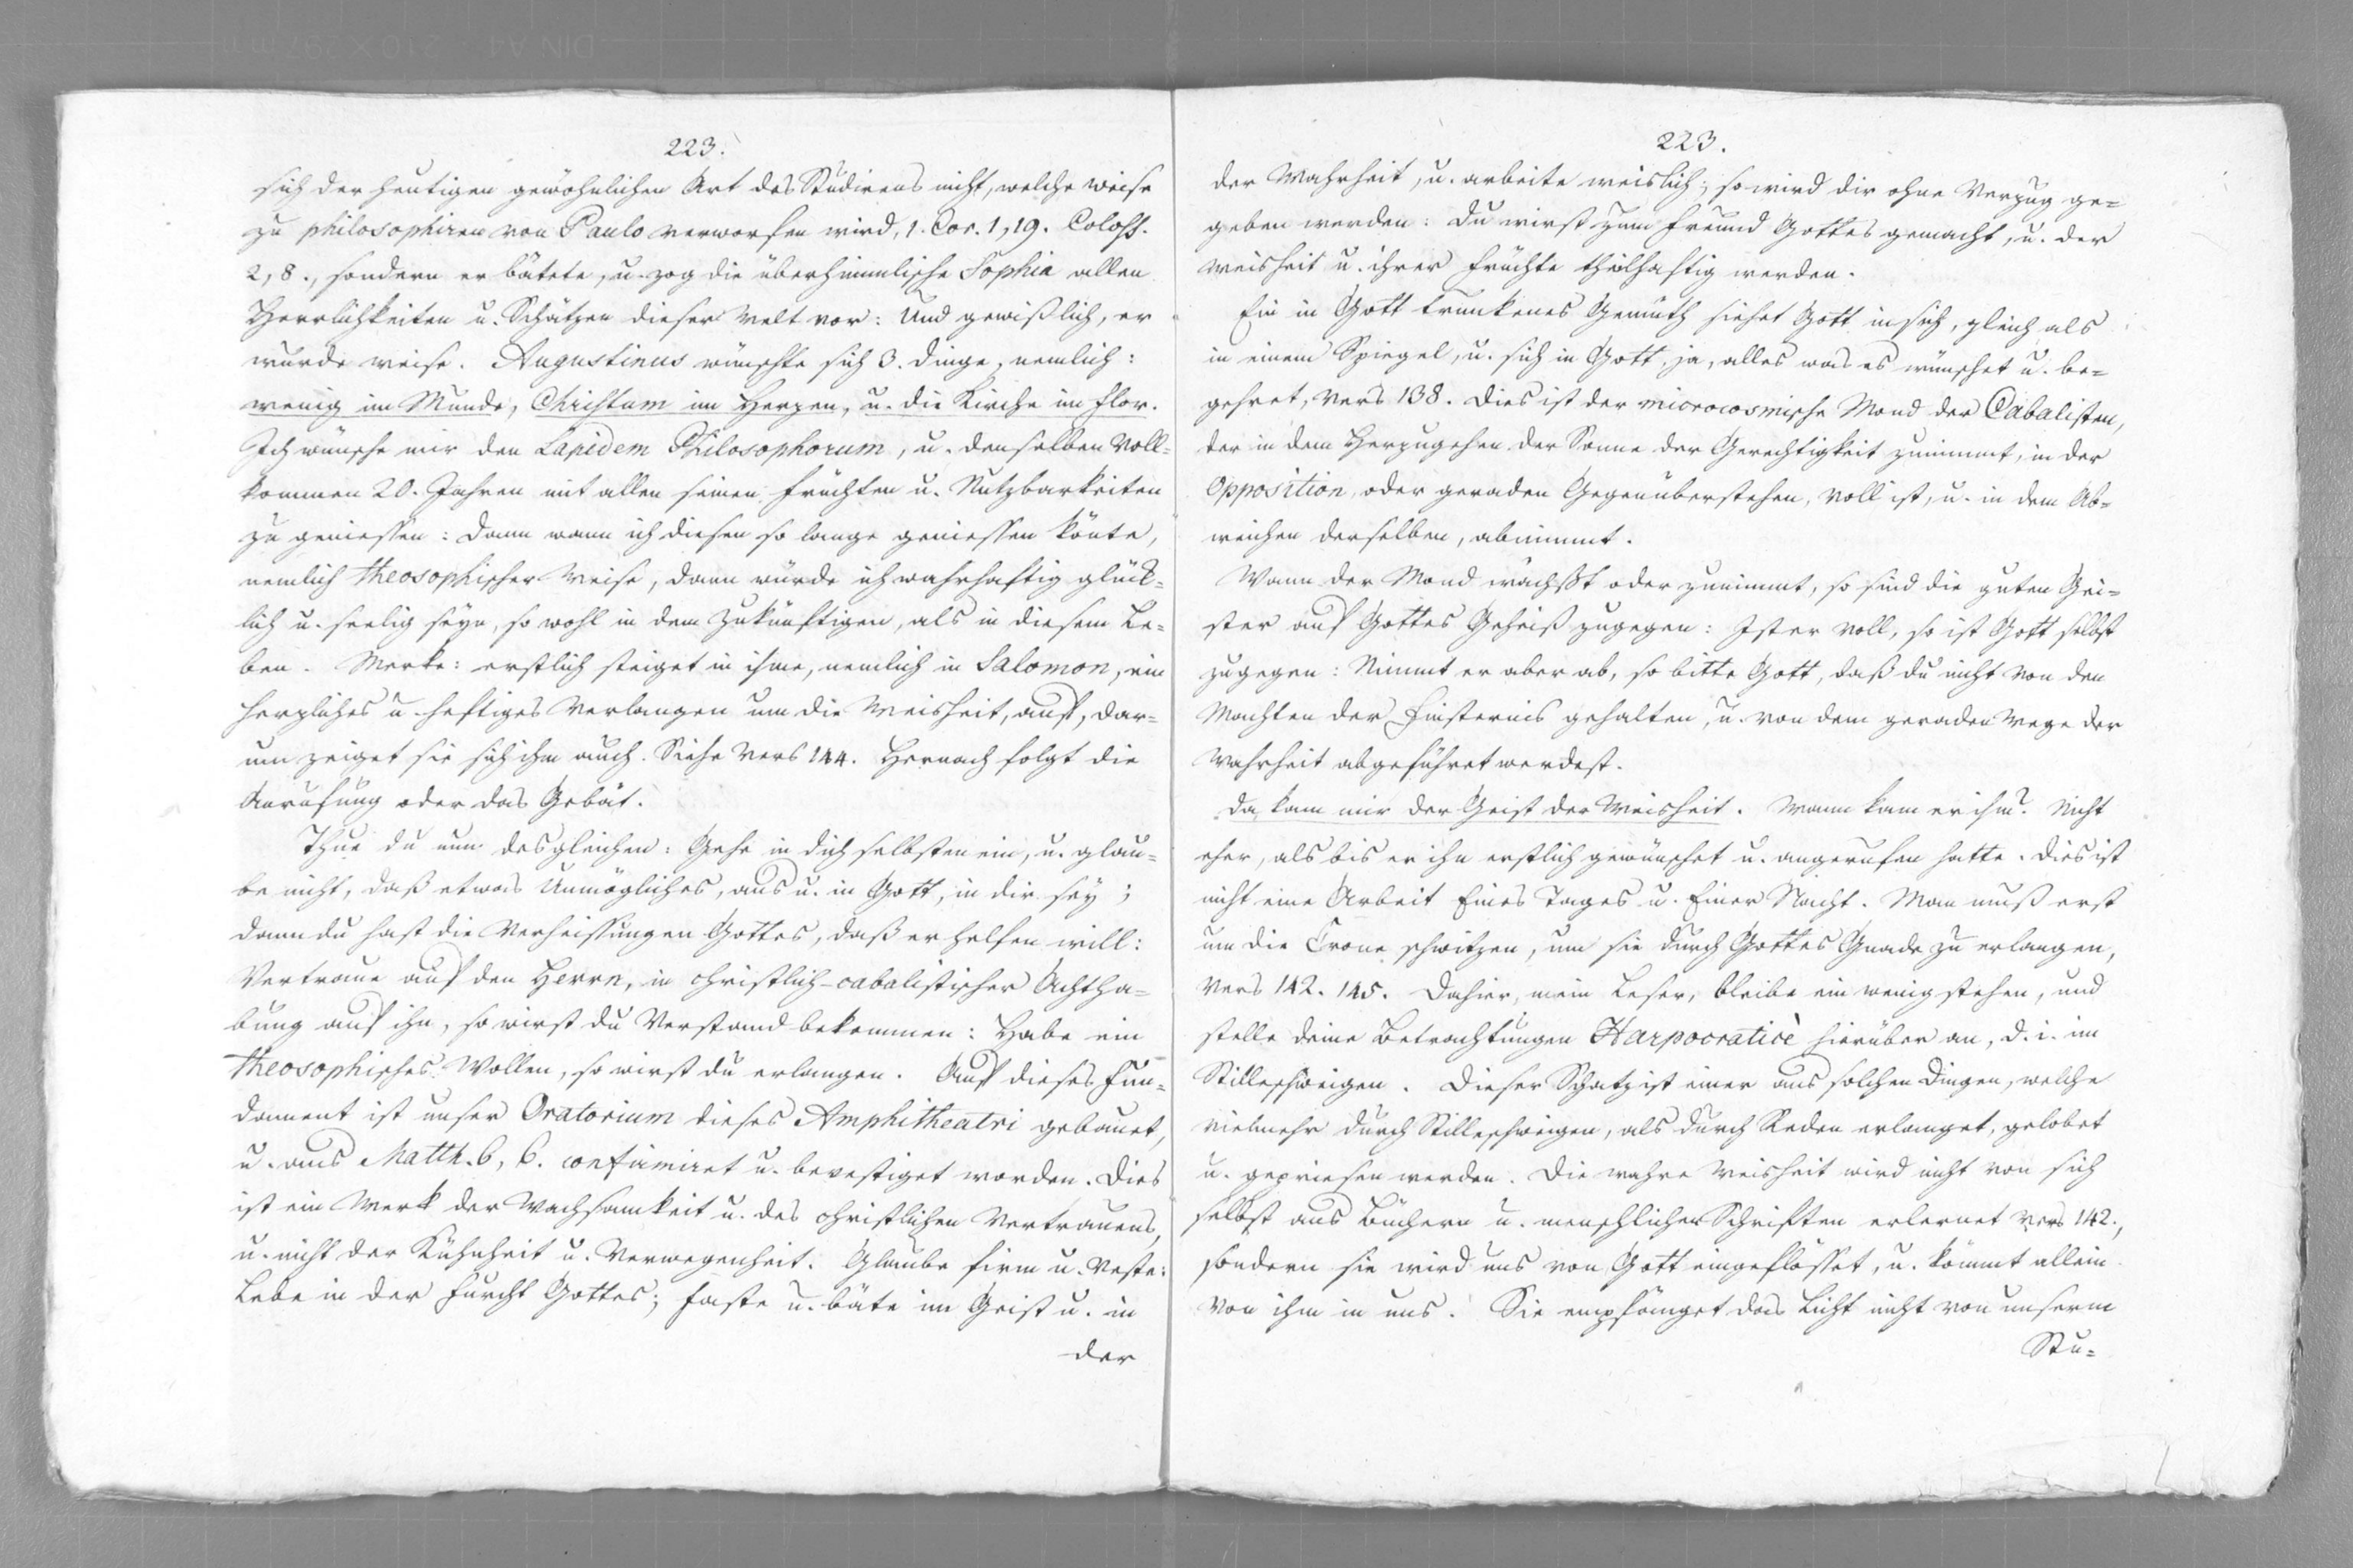 223.
sich der heutigen gewöhnlichen Art des Studirens nicht, welche weise
zu philosophiren von Paulo verworfen wird, 1. Cor. 1, 19. Coloss.
2, 8., sondern er bätete, u. zog die überhimmlische Sophia allen
Herrlichkeiten u. Schätzen dieser Welt vor: Und gewißlich, er
wurde weise. Augustinus wünschte sich 3. Dinge, nemlich:
wenig im Munde, Christum im Herzen, u. die Kirche im Flor.
Ich wünsche mir den Lapidem Philosophorum, u. denselben voll-
kommen 20. Jahren mit allen seinen Früchten u. Nutzbarkeiten
zu geniessen: Dann wann ich diesen so lange geniessen könte,
nemlich theosophischer Weise, dann würde ich wahrhaftig glück-
lich u. seelig seyn, so wohl in dem Zukünftigen, als in diesem Le-
ben. Merke: erstlich steiget in ihme, nemlich in Salomon, ein
herzliches u. heftiges Verlangen um die Weisheit, auf, dar-
um zeiget sie sich ihm auch. Siehe Vers 144. Hernach folgt die
Anrufung oder das Gebät.
Thue du nun desgleichen: Gehe in dich selbsten ein, u. glau-
be nicht, daß etwas Unmögliches, aus u. in Gott, in dir sey;
dann du hast die Verheissungen Gottes, daß er helfen will:
Vertraue auf den Herrn, in christlich-cabalistischer Achtha-
bung auf ihn, so wirst du Verstand bekommen: Habe ein
theosophisches Wollen, so wirst du erlangen. Auf dieses Fun-
dament ist unser Oratorium dieses Amphitheatri gebauet,
u. aus Matth. 6, 6. confirmiret u. bevestiget worden. Dies
ist ein Werk der Wachsamkeit u. des christlichen Vertrauens,
u. nicht der Kühnheit u. Verwegenheit. Glaube firm u. veste:
Lebe in der Furcht Gottes; faste u. bäte im Geist u. in
der
223.
der Wahrheit, u. arbeite weislich; so wird dir ohne Verzug ge-
geben werden: Du wirst zum Freund Gottes gemacht, u. der
Weisheit u. ihrer Früchte theilhaftig werden.
Ein in Gott trunkenes Gemüth siehet Gott in sich, gleich als
in einem Spiegel, u. sich in Gott, ja, alles was es wünschet u. be-
gehret, Vers 138. Dies ist der microcosmische Mond der Cabalisten,
der in dem Herzugehen der Sonne der Gerechtigkeit zunimmt, in der
Opposition, oder geraden Gegenüberstehen, voll ist, u. in dem Ab-
weichen derselben, abnimmt.
Wann der Mond wächßt oder zunimmt, so sind die guten Gei-
ster auf Gottes Geheiß zugegen: Ist er voll, so ist Gott selbst
zugegen: Nimmt er aber ab, so bitte Gott, daß du nicht von den
Machten der Finsternis gehalten, u. von dem geraden Wege der
Wahrheit abgeführet werdest.
Da kam mir der Geist der Weisheit. Wann kam er ihm? Nicht
eher, als bis er ihn erstlich gewünschet u. angerufen hatte. Dies ist
nicht eine Arbeit Eines Tages u. Einer Nacht. Man muß erst
um die Crone schwitzen, um sie durch Gottes Gnade zu erlangen,
Vers 142. 145. Dahier, mein Leser, bleibe ein wenig stehen, und
stelle deine Betrachtungen Harpocraticè hierüber an, d. i. im
Stilleschweigen. Dieser Schatz ist einer aus solchen Dingen, welche
vielmehr durch Stilleschweigen, als durch Reden erlanget, gelobet
u. gepriesen werden. Die wahre Weisheit wird nicht von sich
selbst aus Büchern u. menschlichen Schriften erlernet Vers 142.,
sondern sie wird uns von Gott eingeflösset, u. kömmt allein
von ihm in uns. Sie empfänget das Licht nicht von unserm
Stu-